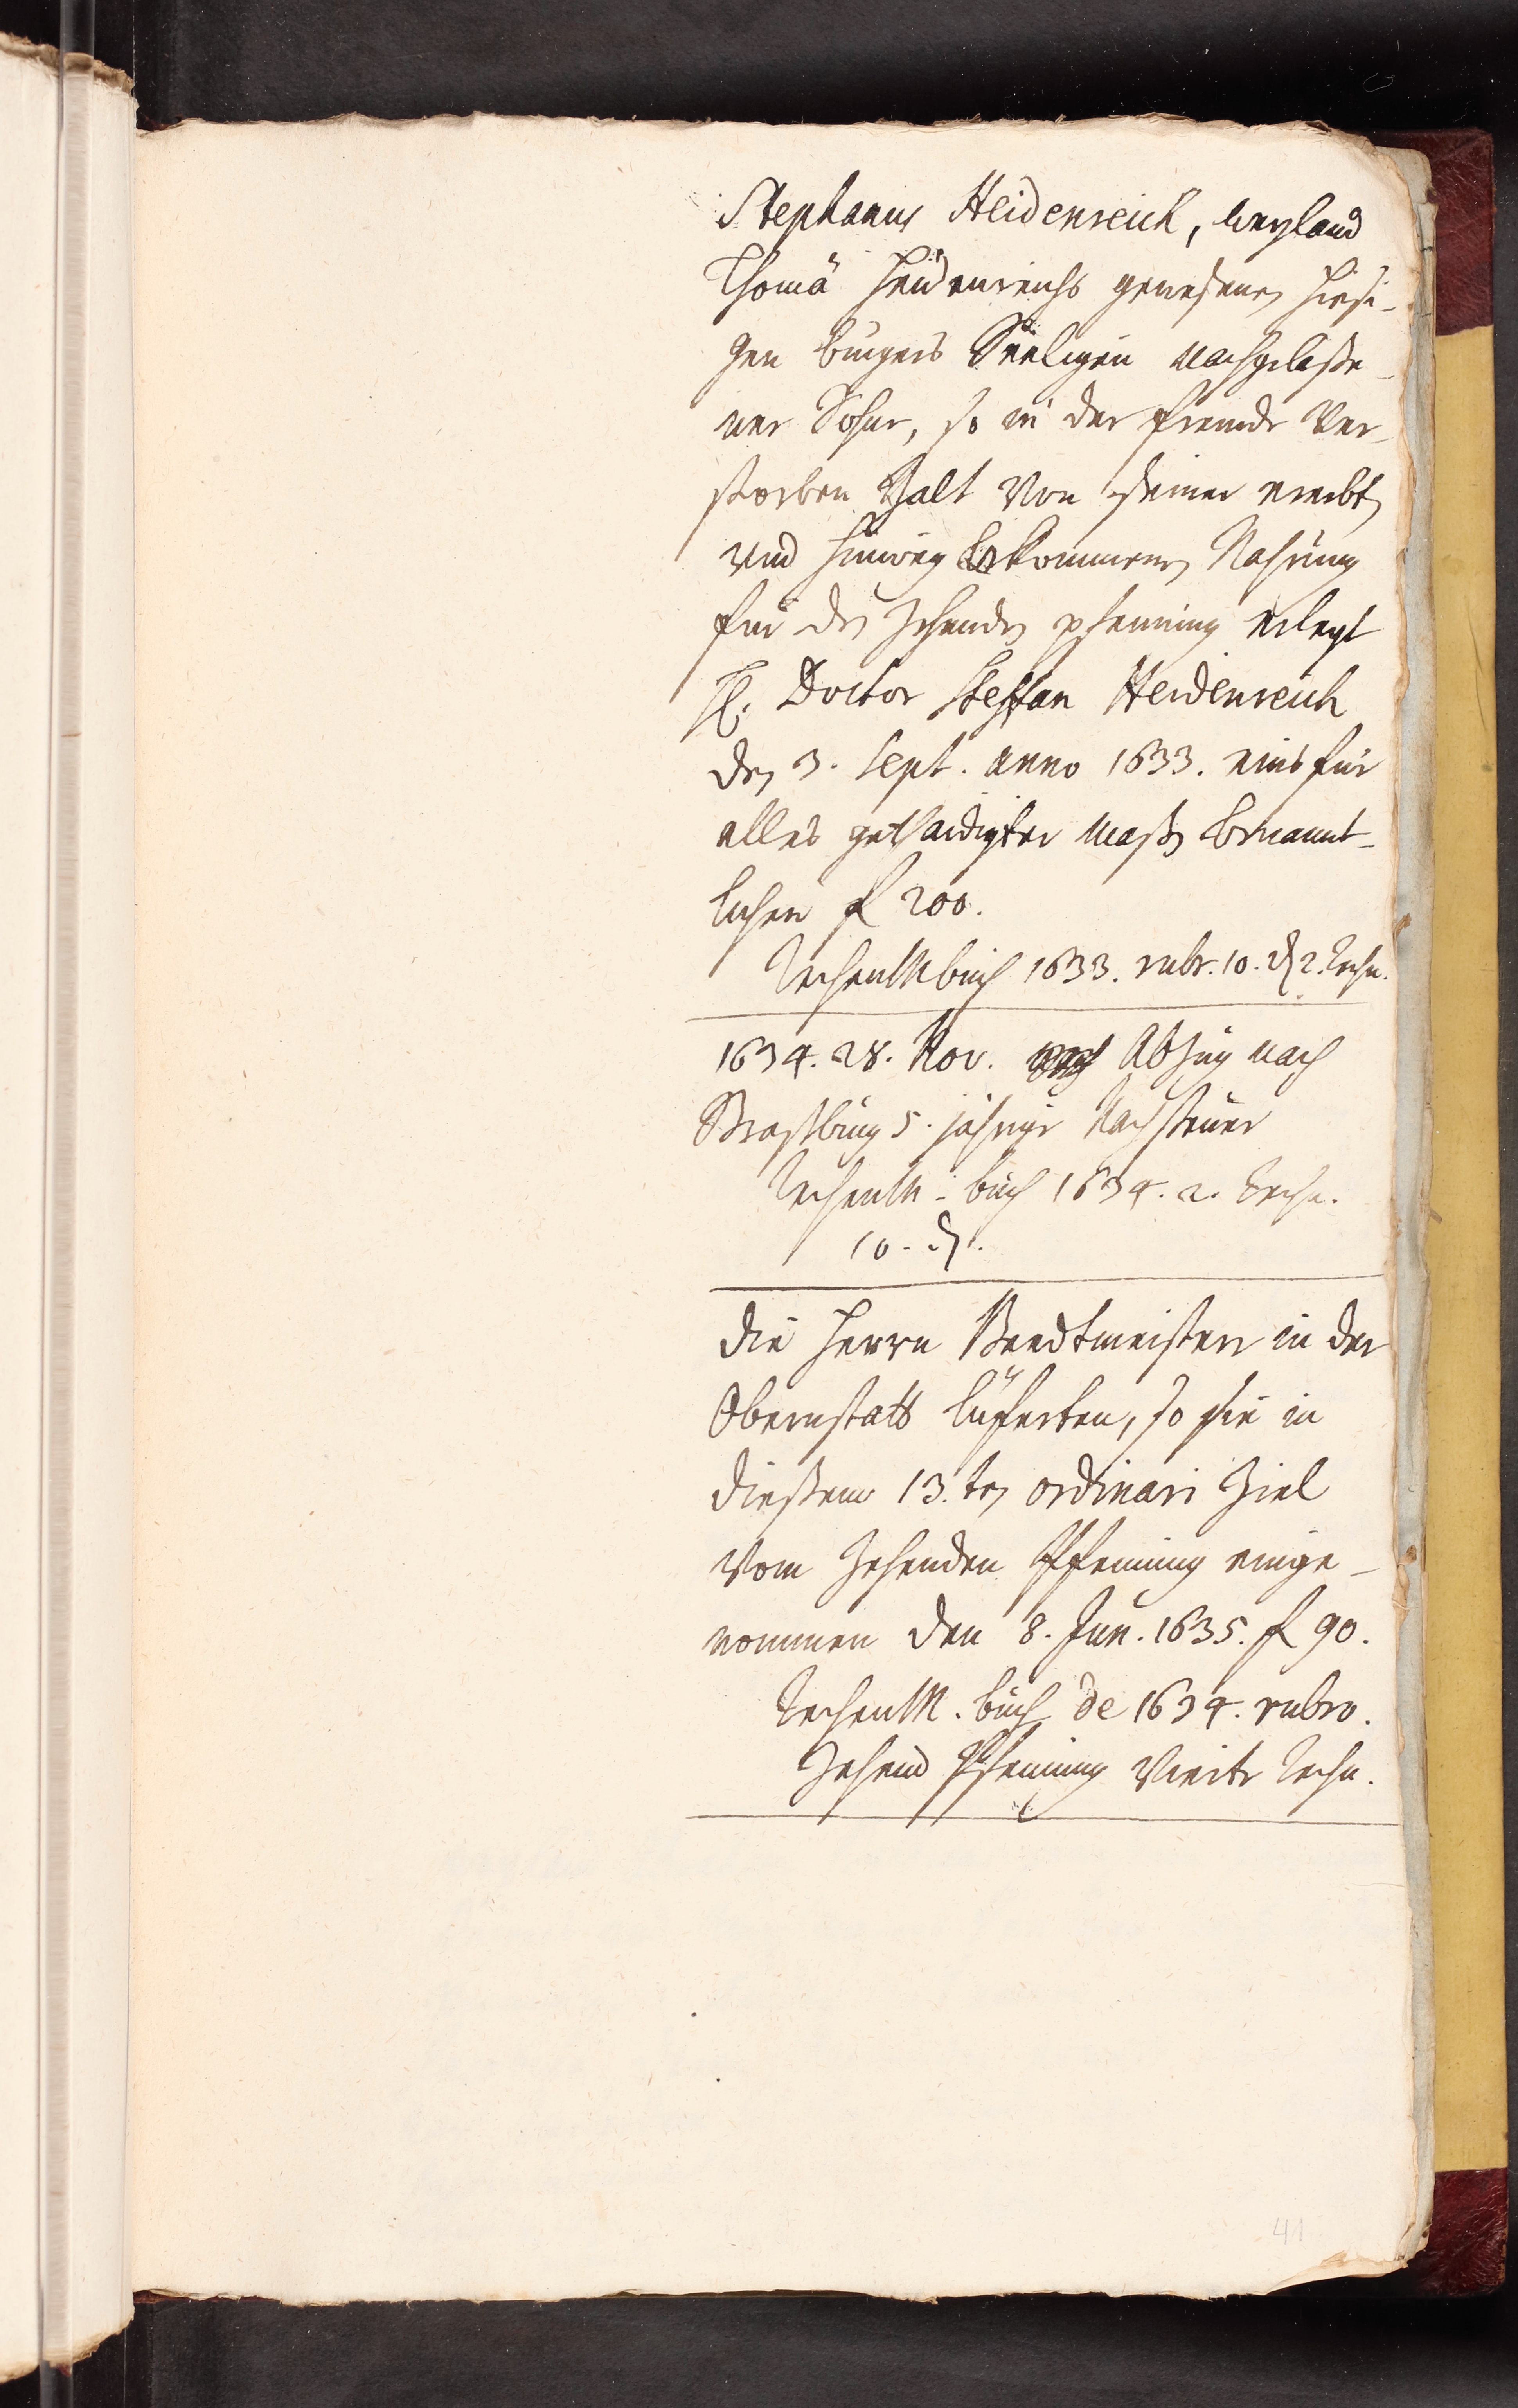 Stephanus Heidenreich, weyland
Thomä Heidenreichs gewesenen hiesi-
gen burgers Seeligen nachgelaße-
ner Sohne, so in der frembde Ver-
storben Zalt Von seiner ererbten
und hinweg bekommenen Nahrung
für den Zehenden pfenning erlegt
H. Doctor Steffan Heidenreich
den 3. Sept. anno 1633. eins für
alles gethädigter maßen benannt-
lichen fl 200.
Rechenbuch 1633. rubr. 10. ₰ 2. Rechn.
1634. 28. Nov. Abzug nach
Straßburg 5. jährige Nachsteuer
Rechen buch 1634. 2. Rechn.
10. ₰.
Die Herrn Beedtmeister in der
Obernstatt lüferten, so sie in
dießem 13.ten ordinari Ziel
Vom Zehenden Pfenning einge-
nommen den 8. Jun. 1635. fl 90.
Rechen buch de 1634. rubro.
Zehend Pfenning Vierte Rechn.
41